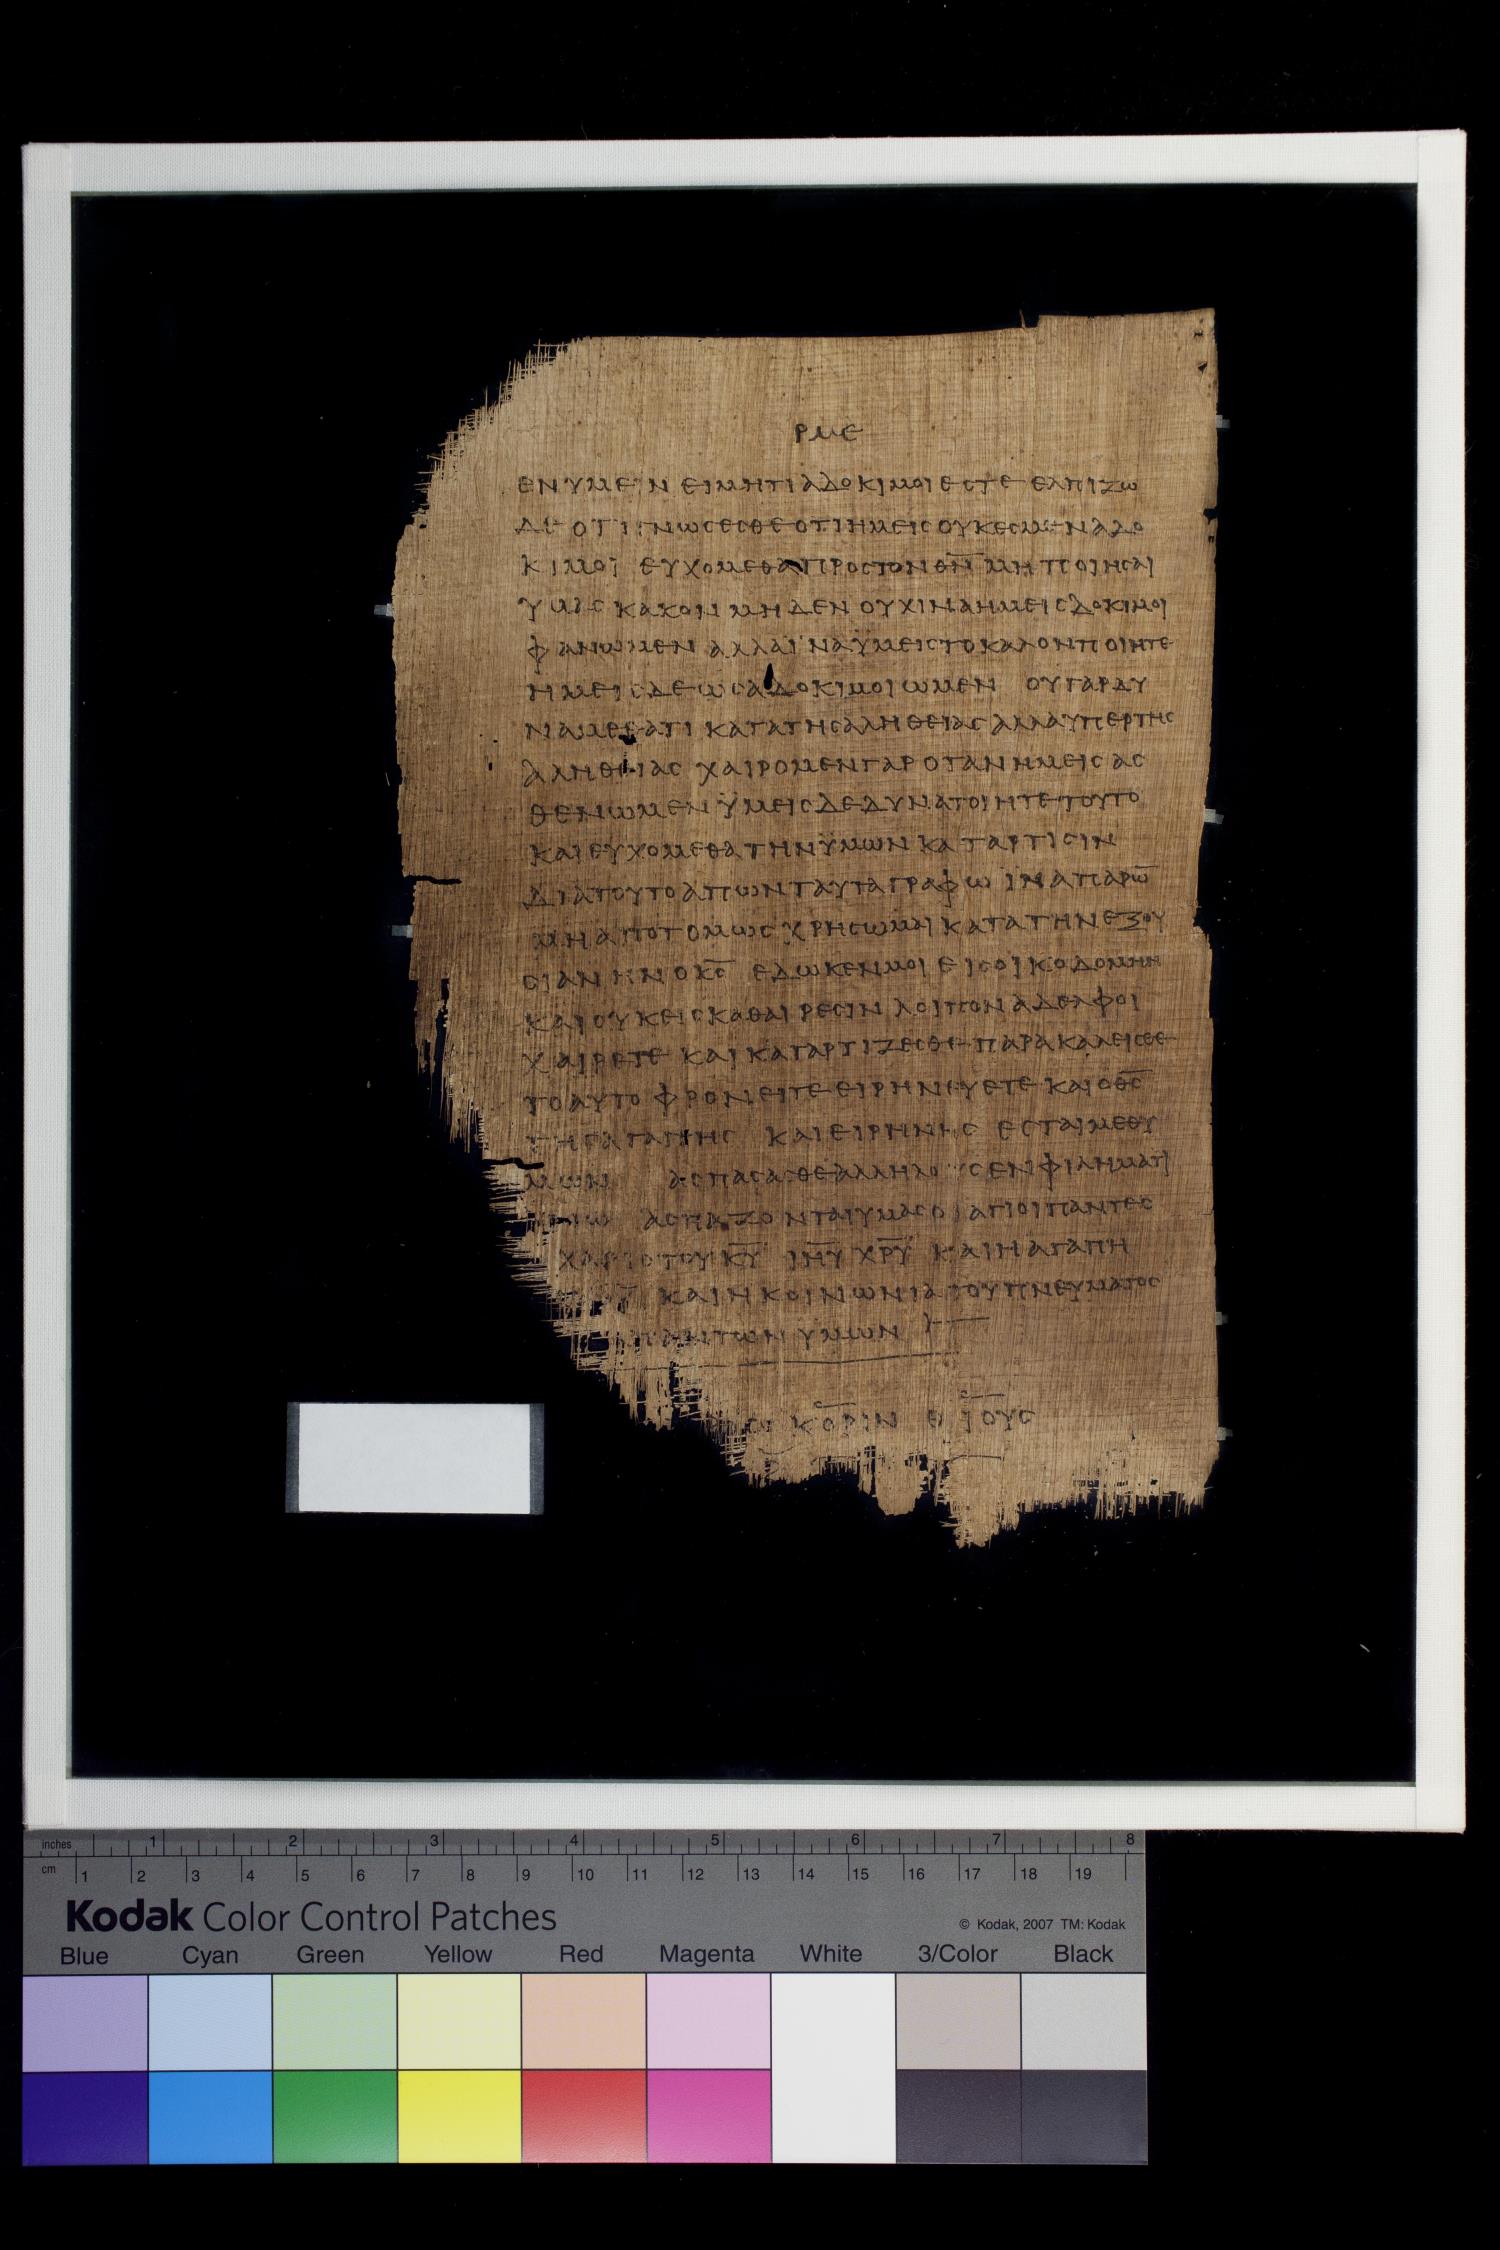 ΡΜΕ
ΕΝΥΜΕΙΝ ΕΙΜΗΤΙΑΔΟΚΙΜΟΙΕΣΤΕ ΕΛΠΙΖΩ
ΔΕ ΟΤΙΓΝΩϹΕϹΘΕΟΤΙΗΜΕΙϹΟΥΚΕϹΜΕΝΑΔΟ
ΚΙΜΟΪ ΕΥΧΟΜΕΘΑΠΡΟϹΤΟΝΘ̅Ν̅ ΜΗΠΟΙΗϹΑΙ
ΥΜΑϹ ΚΑΚΟΝ ΜΗΔΕΝ ΟΥΧΙΝΑΗΜΕΙϹΔΟΚΙΜΟΙ
ΦΑΝΩΜΕΝ ΑΛΛΑΪΝΑΫΜΕΙϹΤΟΚΑΛΟΝΠΟΙΗΤΕ
ΗΜΕΙϹΔΕΩϹΑΔΟΚΙΜΟΙΩΜΕΝ ΟΥΓΑΡΔΥ
ΝΑΜΕΘΑΤΙ ΚΑΤΑΤΗϹΑΛΗΘΕΙΑϹΑΛΛΑΥΠΕΡΤΗϹ
ΑΛΗΘΕΙΑϹ ΧΑΙΡΟΜΕΝΓΑΡ ΟΤΑΝΗΜΕΙϹΑϹ
ΘΕΝΩΜΕΝ ΫΜΕΙϹΔΕΔΥΝΑΤΟΙΗΤΕΤΟΥΤΟ
ΚΑΙΕΥΧΟΜΕΘΑΤΗΝΫΜΩΝ ΚΑΤΑΡΤΙϹΙΝ
ΔΙΑΤΟΥΤΟΑΠΩΝΤΑΥΤΑΓΡΑΦΩ ΙΝΑΠΑΡΩ̅
ΜΗΑΠΟΤΟΜΩϹ ΧΡΗϹΩΜΑΙ ΚΑΤΑΤΗΝΕΞΟΥ
ϹΙΑΝ ΗΝΟΚ̅Ϲ̅ ΕΔΩΚΕΝΜΟΙ ΕΙϹΟΙΚΟΔΟΜΗΝ
ΚΑΙΟΥΚΕΙϹΚΑΘΑΙΡΕϹΙΝ ΛΟΙΠΟΝΑΔΕΛΦΟΙ
ΧΑΙΡΕΤΕ ΚΑΙΚΑΤΑΡΤΙΖΕϹΘΕΠΑΡΑΚΑΛΕΙϹΘΕ
ΤΟΑΥΤΟ ΦΡΟΝΕΙΤΕΕΙΡΗΝΕΥΕΤΕ ΚΑΙΟΘ̅Ϲ̅
ΤΗϹΑΓΑΠΗϹ ΚΑΙΕΙΡΗΝΗϹ ΕϹΤΑΙΜΕΘΥ
ΜΩΝ ΑϹΠΑϹΑϹΘΕΑΛΛΗΛΟΥϹΕΝΦΙΛΗΜΑΤΙ
ΑΓΙΩ ΑϹΠΑΖΟΝΤΑΙΥΜΑϹΟΙΑΓΙΟΙΠΑΝΤΕϹ
ΧΑΡΙϹΤΟΥΚ̅Υ̅ Ι̅Η̅Υ̅ Χ̅Ρ̅Υ̅ ΚΑΙΗΑΓΑΠΗ
ΚΑΙΗΚΟΙΝΩΝΙΑΤΟΥΠΝΕΥΜΑΤΟϹ
ΠΑΝΤΩΝ ΥΜΩΝ
ΚΟΡΙΝΘΙΟΥϹ
inches 1 2 3 4 5 6 7 8
cm 1 2 3 4 5 6 7 8 9 10 11 12 13 14 15 16 17 18 19
Kodak Color Control Patches
© Kodak, 2007 TM: Kodak
Blue Cyan Green Yellow Red Magenta White 3/Color Black